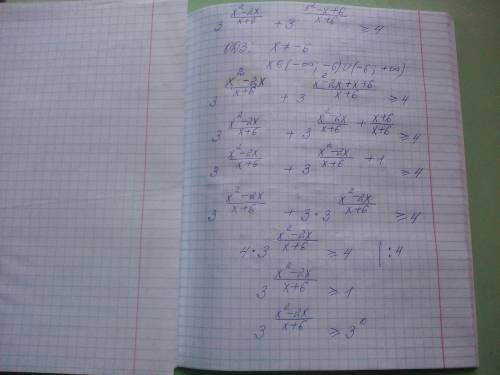 3^((x²-2x)/(x+6)) + 3^((x²-x+6)/(x+6)) ≥ 4
ОДЗ: x ≠ -6
x ∈ (-∞; -6) ∪ (-6; +∞)
3^((x²-2x)/(x+6)) + 3^((x²-2x+x+6)/(x+6)) ≥ 4
3^((x²-2x)/(x+6)) + 3^((x²-2x)/(x+6) + (x+6)/(x+6)) ≥ 4
3^((x²-2x)/(x+6)) + 3^((x²-2x)/(x+6) + 1) ≥ 4
3^((x²-2x)/(x+6)) + 3·3^((x²-2x)/(x+6)) ≥ 4
4·3^((x²-2x)/(x+6)) ≥ 4 | :4
3^((x²-2x)/(x+6)) ≥ 1
3^((x²-2x)/(x+6)) ≥ 3^0